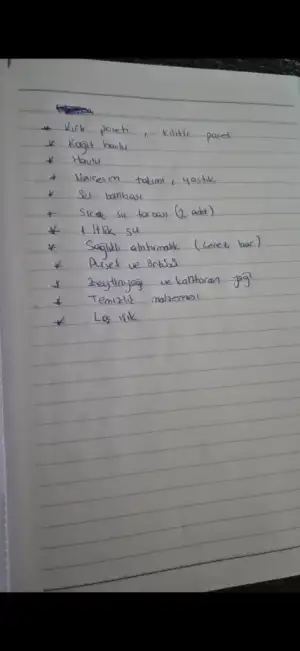 * Kirli poşeti, kilitli poşet
* Kağıt havlu
* Havlu
* Nevresim takımı, yastık
* Su bardağı
* Sıcak su torbası (2 adet)
* 1 litlik su
* Sağlıklı atıştırmalık ( bar)
* Puset ve örtüsü
* Zeytinyağı ve kantaron yağı
* Temizlik malzemesi
* Loş ışık